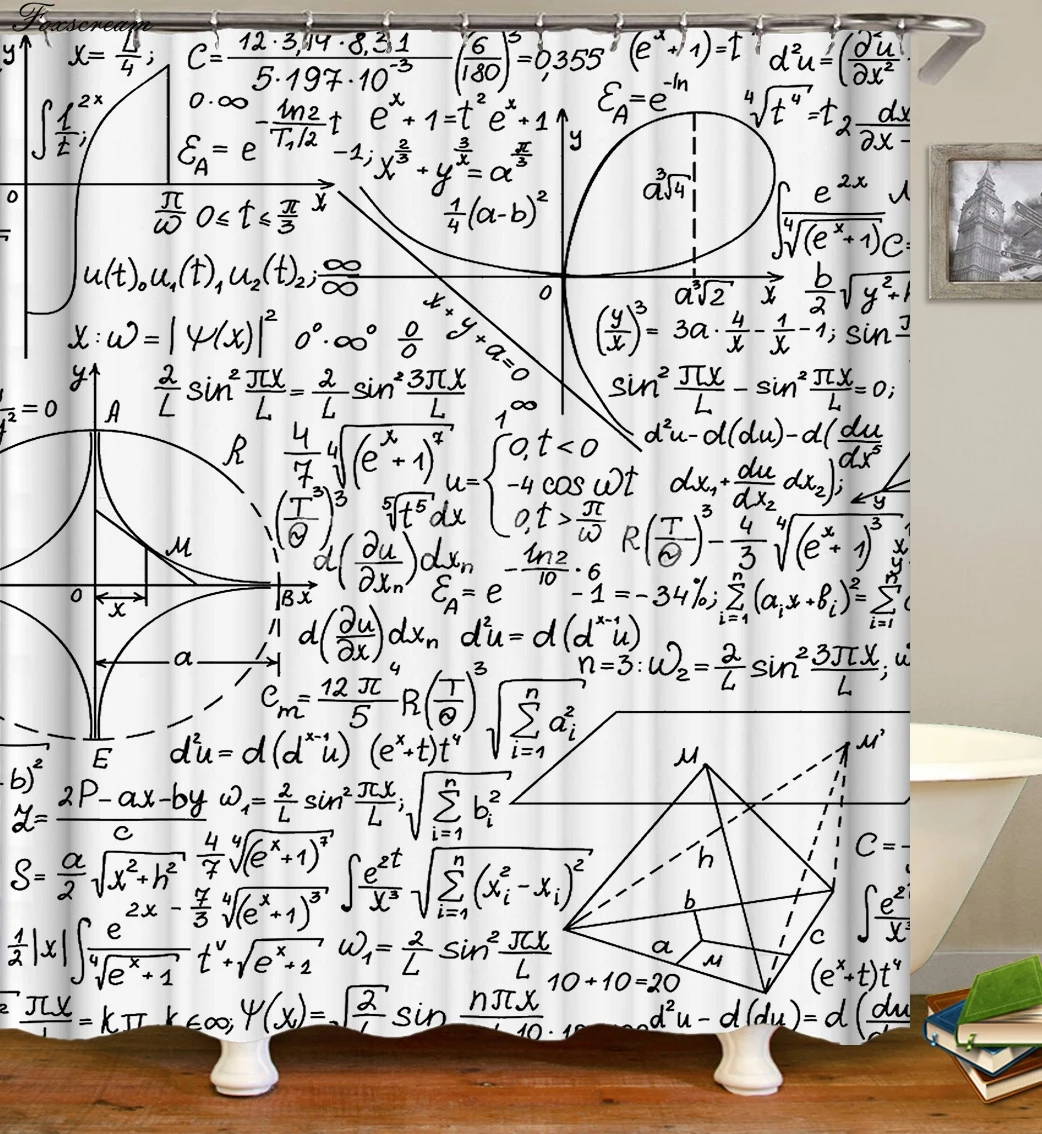 Foxscream
y
x = L/4;
C = 12·3,14·8,31 / 5·197·10⁻³ (6/180)³ = 0,355
(eˣ+1) = t
d²u = (∂²u/∂x²
∫ 1/t^2x;
0·∞
-ln2/T₁/₂ t
eˣ+1 = t² eˣ+1
ℰ_A = e^-ln
⁴√t⁴ = t
2 dx/∂x -
ℰ_A = e
-1; x^2/3 + y^3/x = a^π/3
y
a³√4
0
π/ω 0 ≤ t ≤ π/3
x
1/4 (a-b)²
∫ e^2x / ⁴√(eˣ+1)
C=
u(t)₀ u₁(t)₁ u₂(t)₂; ∞/∞
0
a³√2
x
b/2 √y²+h
x:ω = |Ψ(x)|² 0⁰·∞⁰ 0/0
x+y+a=0
(y/x)³ = 3a·4/x - 1/x - 1; sin
y
2/L sin² πx/L = 2/L sin² 3πx/L
sin² πx/L - sin² πx/L = 0;
y² = 0
A
R
1^∞
4/7 ⁴√(eˣ+1)⁷
u = { 0, t < 0
-4 cos ωt
0, t > π/ω
d²u - d(du) - d(du/dx⁵
dx₁ + du/dx₂ dx₂);
y
(T³/Θ)³ ⁵√t⁵ dx
R(T/Θ)³ - 4/3 ⁴√(eˣ+1)³
M
d(∂u/∂xₙ) dxₙ
-ln2/10 · 6
ℰ_A = e -1 = -34%; Σ n i=1 (aᵢx+bᵢ)² = Σ n i=1
0
x
B x
d(∂u/∂x) dxₙ d²u = d(d^x-1 u)
n=3: ω₂ = 2/L sin² 3πx/L;
a
C_m = 12π⁴/5 R(T/Θ)³ √Σ n i=1 aᵢ²
E
d²u = d(d^x-1 u) (eˣ+t)t⁴
M
M'
-b)²
Z = 2P-ax-by / c
ω₁ = 2/L sin² πx/L; √Σ n i=1 bᵢ²
h
C = -
S = a/2 √x²+h² 4/7 ⁴√(eˣ+1)⁷
∫ e^2t/x³ √Σ n i=1 (xᵢ²-xᵢ)²
2x - 7/3 ⁴√(eˣ+1)³
b
∫ e²/x³
1/2 |x| ∫ e / ⁴√eˣ+1 tᵛ + √eˣ+1 ω₁ = 2/L sin² πx/L
a
M
c
10+10=20
(eˣ+t)t⁴
πx = kπ k∈∞; Ψ(x) = √2 sin nπx
d²u - d(du) = d(du